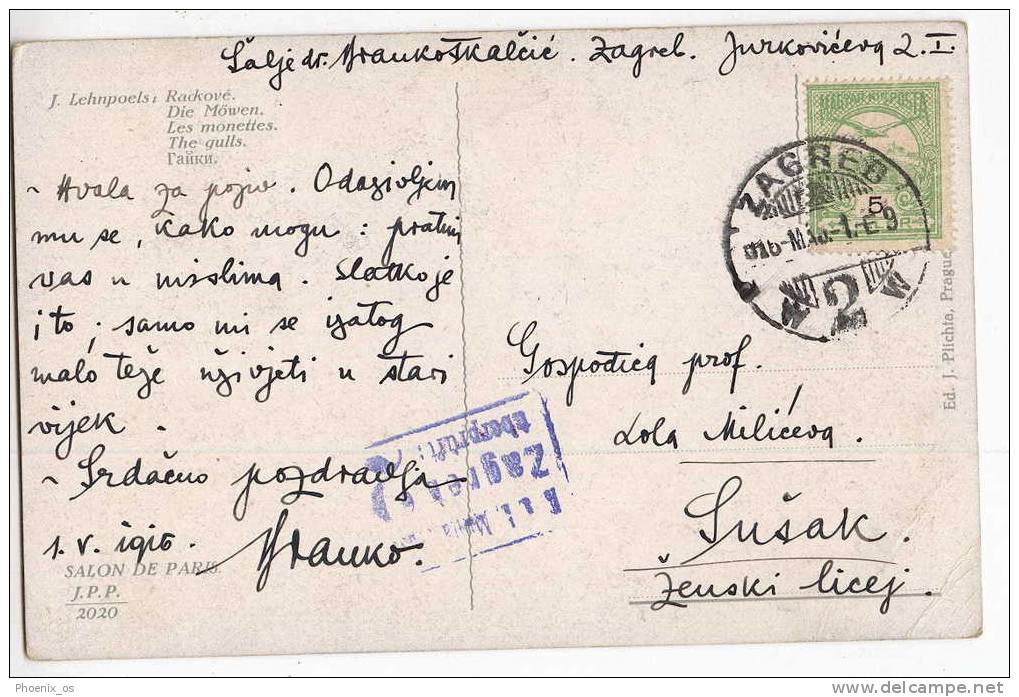 Šalje dr. Branko Škalčić. Zagreb. Jurkovićeva 2. I.
J. Lehnpoels: Rackové.
Die Möwen.
Les monettes.
The gulls.
Гайки.
~ Hvala za poziv. Odazivljem
mu se, kako mogu: pratim
vas u mislima. Slatko je
i to; samo mi se zatog
malo teže uživjeti u stari
vijek.
~ Srdačno pozdravlja
1. V. 1916. Branko.
SALON DE PARIS.
J.P.P.
2020
ZAGREB
916-MÁJ.-1.-E 9
2
5
Gospođica prof.
Lola Milićeva.
Sušak.
Ženski licej.
Zagreb
überprüft:
Ed. J. Plichta, Prague
Phoenix_os
delcampe.net